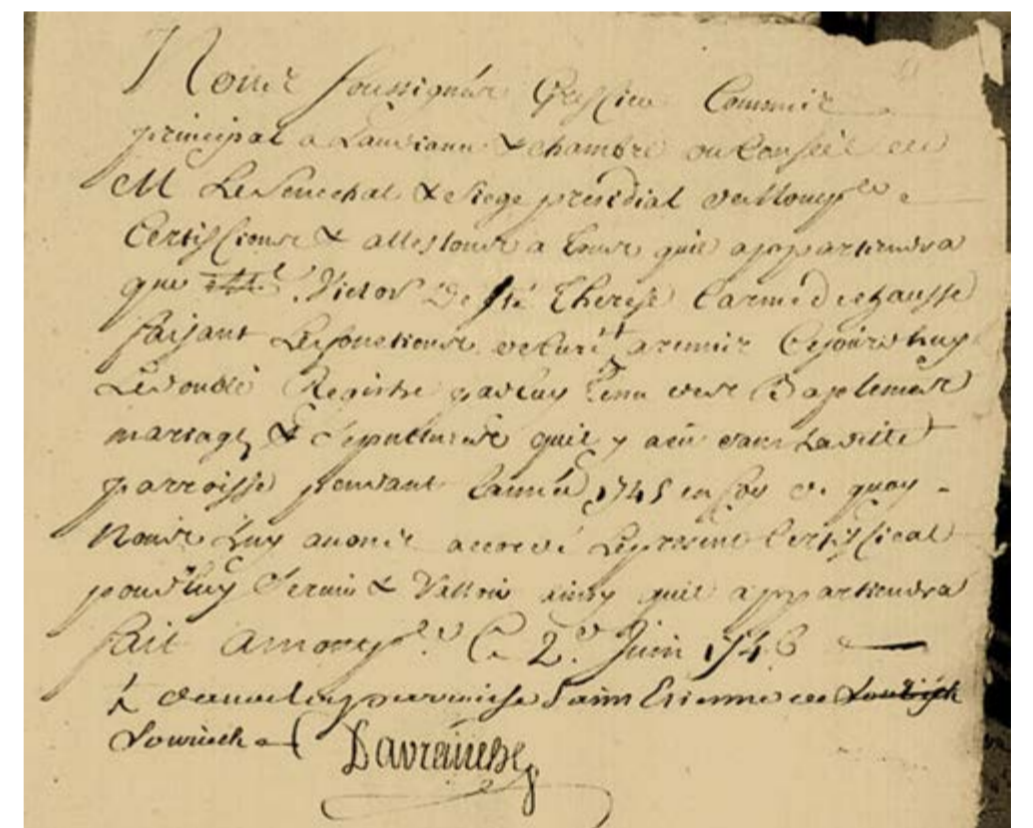 Nous soussignés Greffier Commis
principal a Laudiance & chambre du Conseil de
M Le Senechal & siege presidial de Monp.er
Certiffions & attestons a tous quil appartiendra
que Victor De Ste Therese Carme dechausse
faisant Les fonctions de Curé + a remis Cejourdhuy
Le double Registre par luy tenu des Baptemes
mariages & sepultures quil y a eu dans Ladite
parroisse pendant Lannée 1745 en foy de quoy
Nous luy avons accordé Le present Certifficat
pour luy servir & valloir ainsy quil appartiendra
fait a monp.er Ce 2e Juin 1746
+ parroisse Saint Etienne de